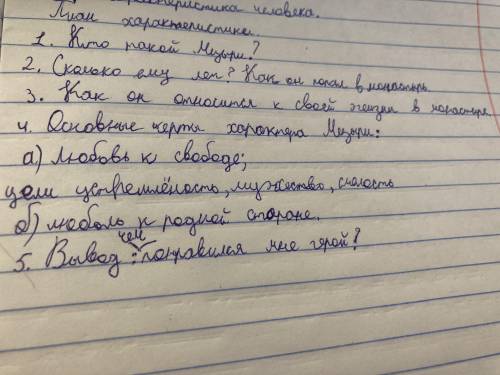 характеристика человека.
План характеристики.
1. Кто такой Мцыри?
2. Сколько ему лет? Как он попал в монастырь
3. Как он относится к своей жизни в монастыре
4. Основные черты характера Мцыри:
а) любовь к свободе;
цели устремлёность, мужество, смелость
б) любовь к родной стороне.
5. Вывод : чем понравился мне герой?